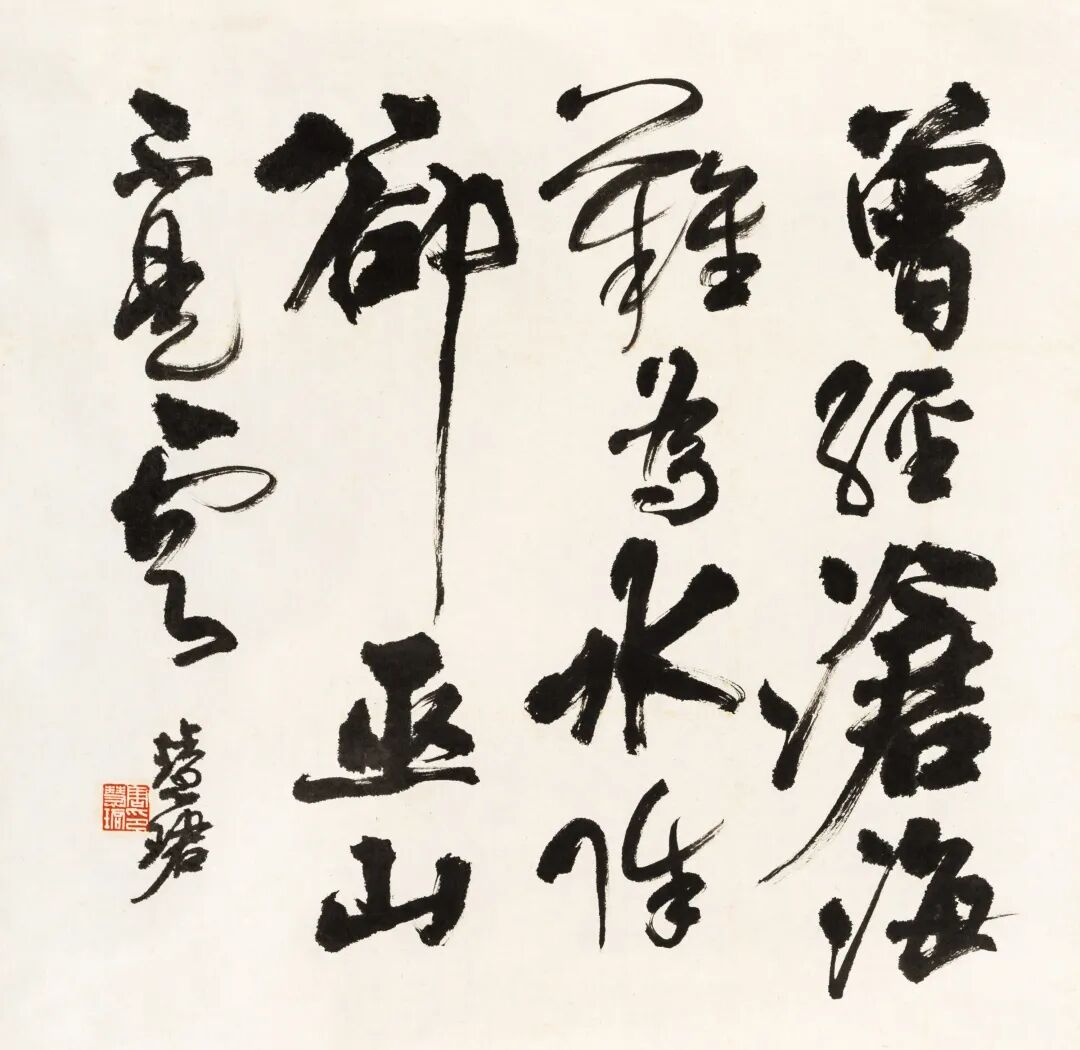 曾經滄海
難為水除
卻巫山
不是雲
慧珺
周印慧珺